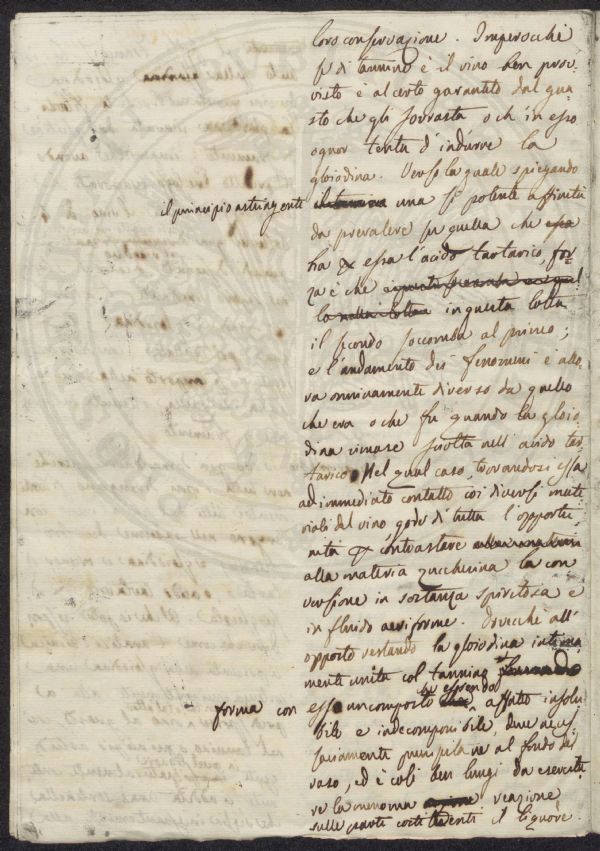 loro conservazione. Imperocchè
se di tannino è il vino ben prov-
visto è al certo garantito dal gua-
sto che gli sovrasta o ch'in esso
ognor tenta d'indurre la
gloiodina. Verso la quale spiegando
il principio astringente una sì potente affinità
da prevalere su quella che
ha essa l'acido tartarico, for-
za è che
in questa lotta
il secondo soccomba al primo;
e l'andamento dei fenomeni è allo-
ra onninamente diverso da quello
che era o che fu quando la gloio-
dina rimase sciolta nell'acido tar-
tarico. Nel qual caso, trovandosi essa
ad immediato contatto coi diversi mate-
riali del vino gode di tutta l'opportu-
nità contrastare
alla materia zuccherina la con
versione in sostanza spiritosa e
in fluido aeriforme. Dovecchè all'
opposto restando la gloiodina intima
mente unita col tannino
forma con esso un composto essendo affatto insolu-
bile e indecomponibile, deve neces
sariamente precipitare al fondo del
vaso, ed è così ben lungi da esercita
re la menoma reazione
sulle parti costituenti il liquore.